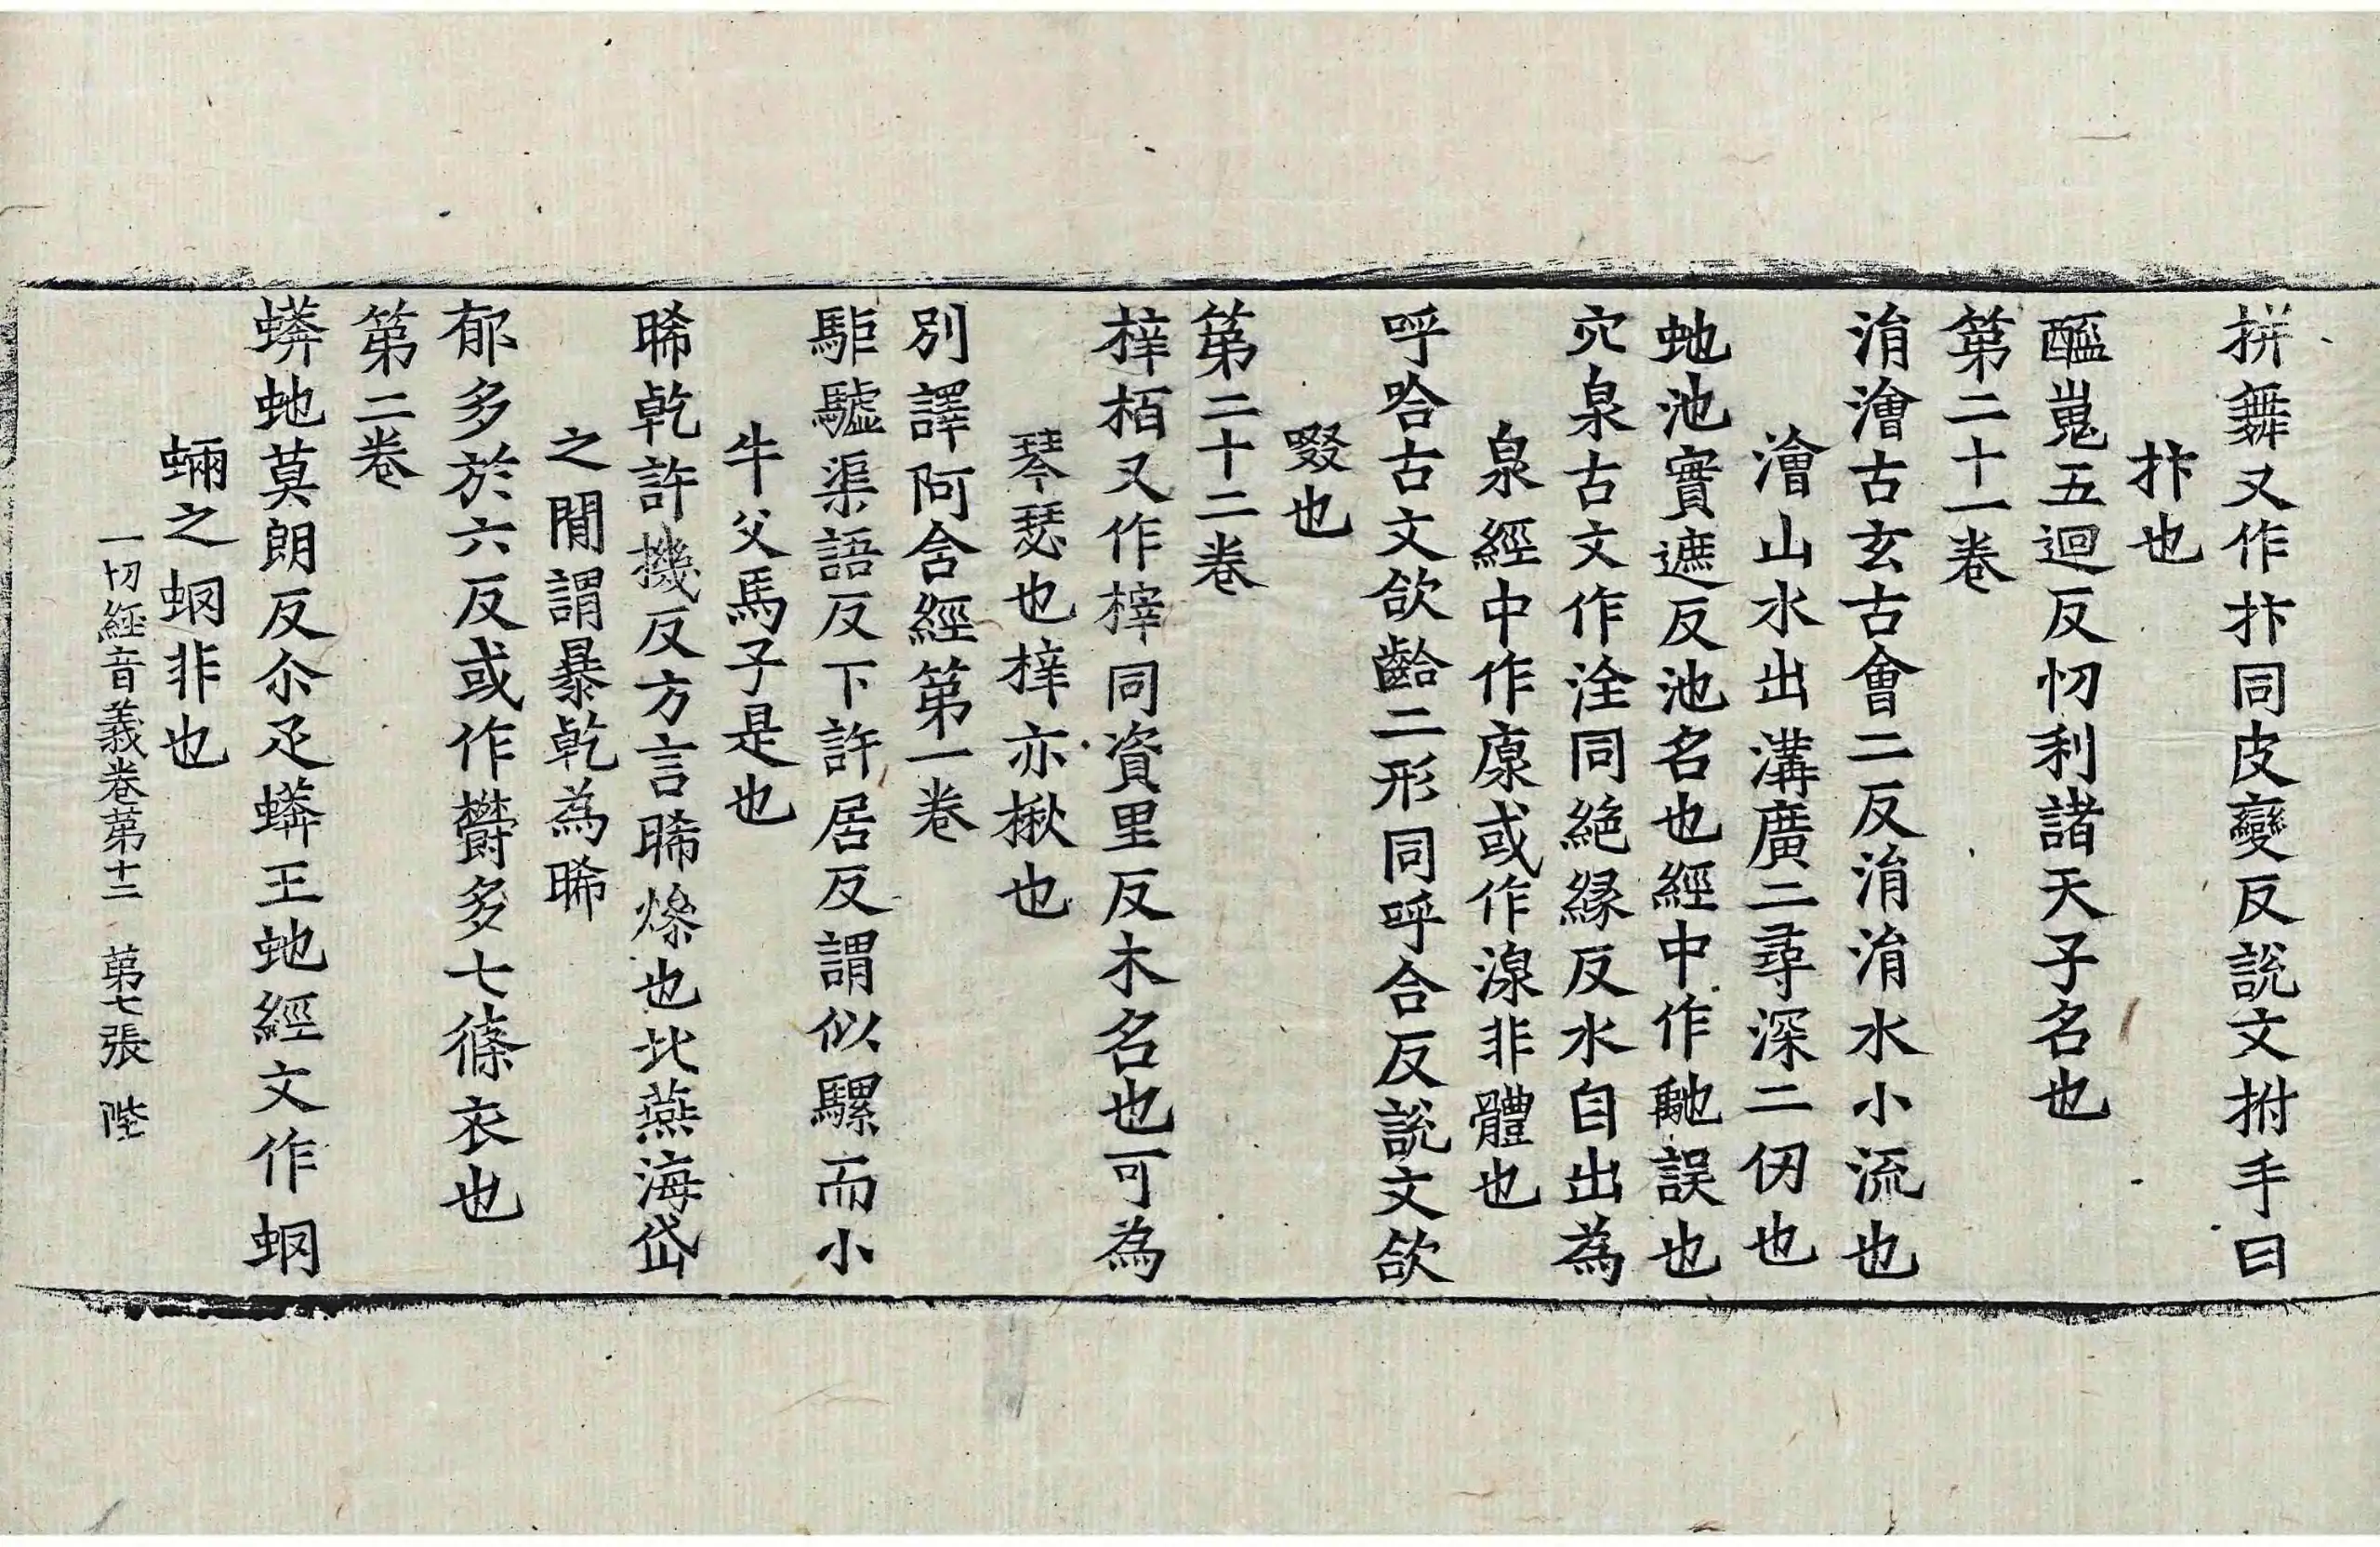 拼舞又作抃同皮變反說文拊手曰
抃也
醖嵬五迴反忉利諸天子名也
第二十一卷
涓澮古玄古會二反涓涓水小流也
澮山水出溝廣二尋深二仞也
虵池實遮反池名也經中作䶔誤也
穴泉古文作洤同絶縁反水自出為
泉經中作㡪或作湶非體也
呼哈古文欱齝二形同呼合反說文欱
啜也
第二十二卷
梓栢又作榟同資里反木名也可為
琴瑟也梓亦楸也
別譯阿含經第一卷
駏驉渠語反下許居反謂似騾而小
牛父馬子是也
晞乾許機反方言晞燥也北燕海岱
之閒謂暴乾為晞
郁多於六反或作欝多七條衣也
第二卷
蟒虵莫朗反尒疋蟒王虵經文作蛧
蜽之蛧非也
一切經音義卷第十二 第七張 陛